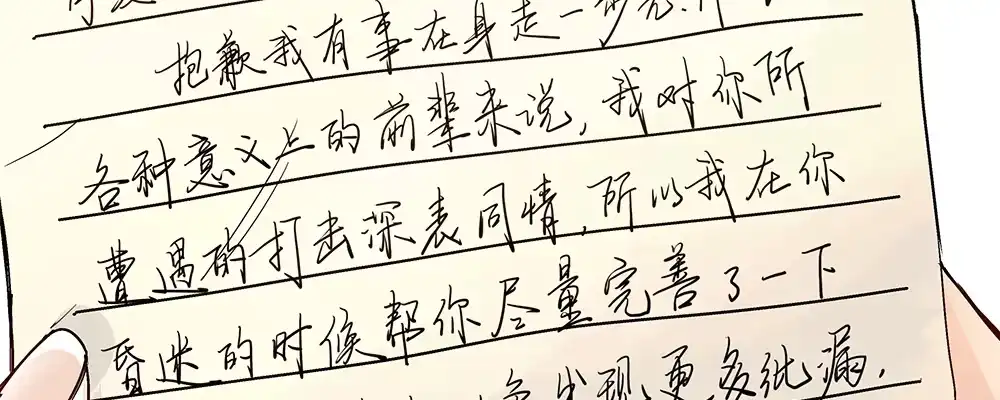 抱歉我有事在身走一步
各种意义上的前辈来说,我对你所
曹遇的打击深表同情,所以我在你
昏迷的时候帮你尽量完善了一下
发现更多纰漏.